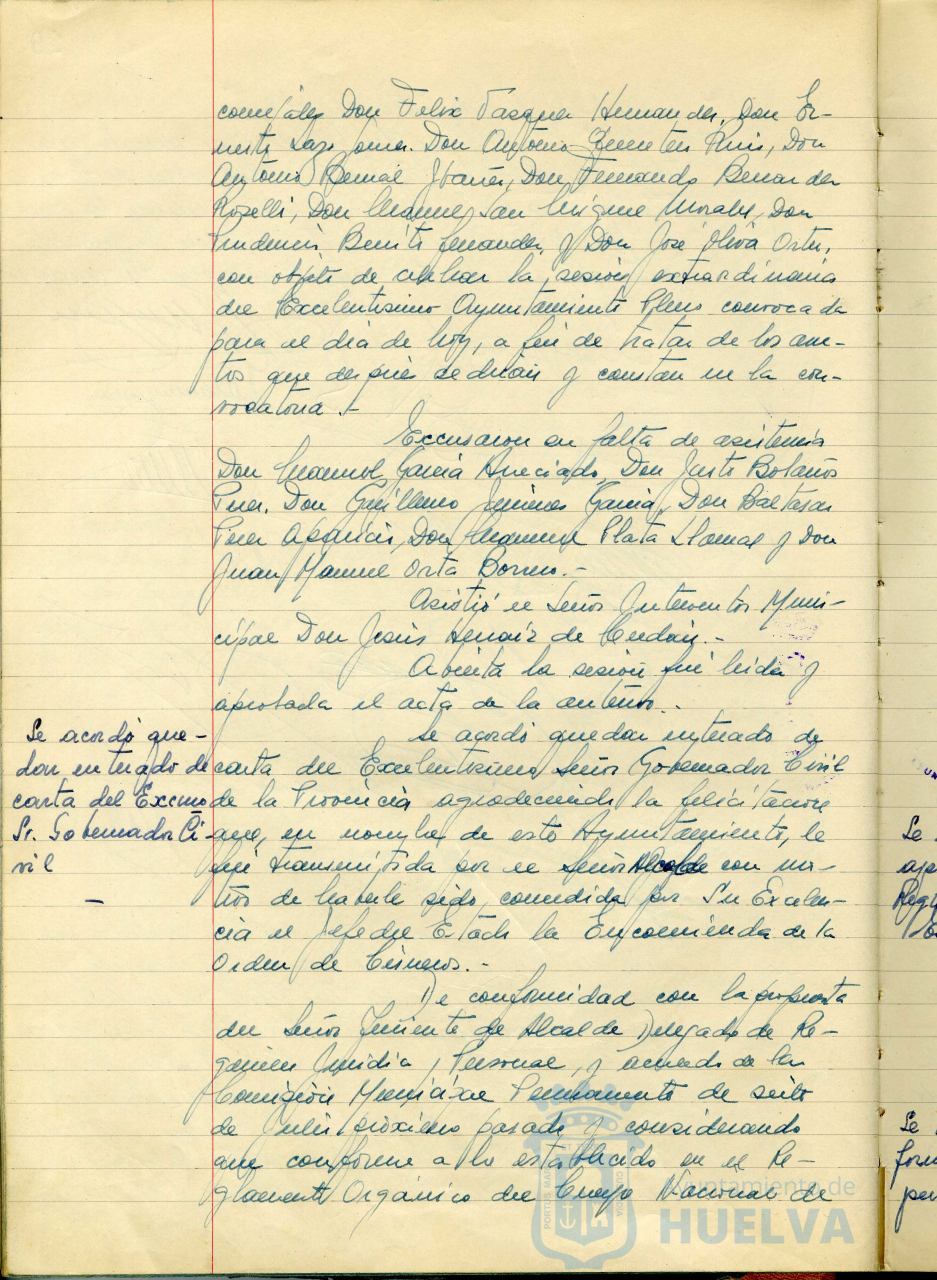 concejales Don Felix Vazquez Hernandez, Don Er-
nesto Lazo Don Antonio Ruiz, Don
Antonio Bernal Ibañez, Don Fernando Bernardez
Roselli, Don Manuel San Miguel Morales, Don
Prudencio Benito Fernandez, y Don José Oliva Orta,
con objeto de celebrar la sesión extraordinaria
del Excelentisimo Ayuntamiento Pleno convocada
para el día de hoy, a fin de tratar de los asun-
tos que después se dirán y constan en la con-
vocatoria.-
Excusaron su falta de asistencia
Don Manuel Garcia Don Justo Bolaños
Perez, Don Guillermo Jimenez Garcia, Don Baltasar
Perez Aparicio, Don Manuel Plata Llamas y Don
Juan Manuel Orta Borrero.-
Asistió el Señor Interventor Muni-
cipal Don Jesús de Cerdán.-
Abierta la sesión fué leida y
aprobada el acta de la anterior.-
Se acordó que-
dar enterado de
carta del Excmo
Sr. Gobernador Ci-
vil
-
Se acordó quedar enterado de
carta del Excelentisimo Señor Gobernador Civil
de la Provincia agradeciendo la felicitación
que, en nombre de este Ayuntamiento, le
fué transmitida por el Señor Alcalde con mo-
tivo de haberle sido concedida por Su Excelen-
cia el Jefe del Estado la Encomienda de la
Orden de Cisneros.-
De conformidad con la propuesta
del Señor Teniente de Alcalde Delegado de Ré-
gimen Jurídico y Personal, y acuerdo de la
Comisión Municipal Permanente de seis
de Julio próximo pasado y considerando
que conforme a lo establecido en el Re-
glamento Orgánico del Cuerpo Nacional de
Se
Se
for
per
Ayuntamiento de
HUELVA